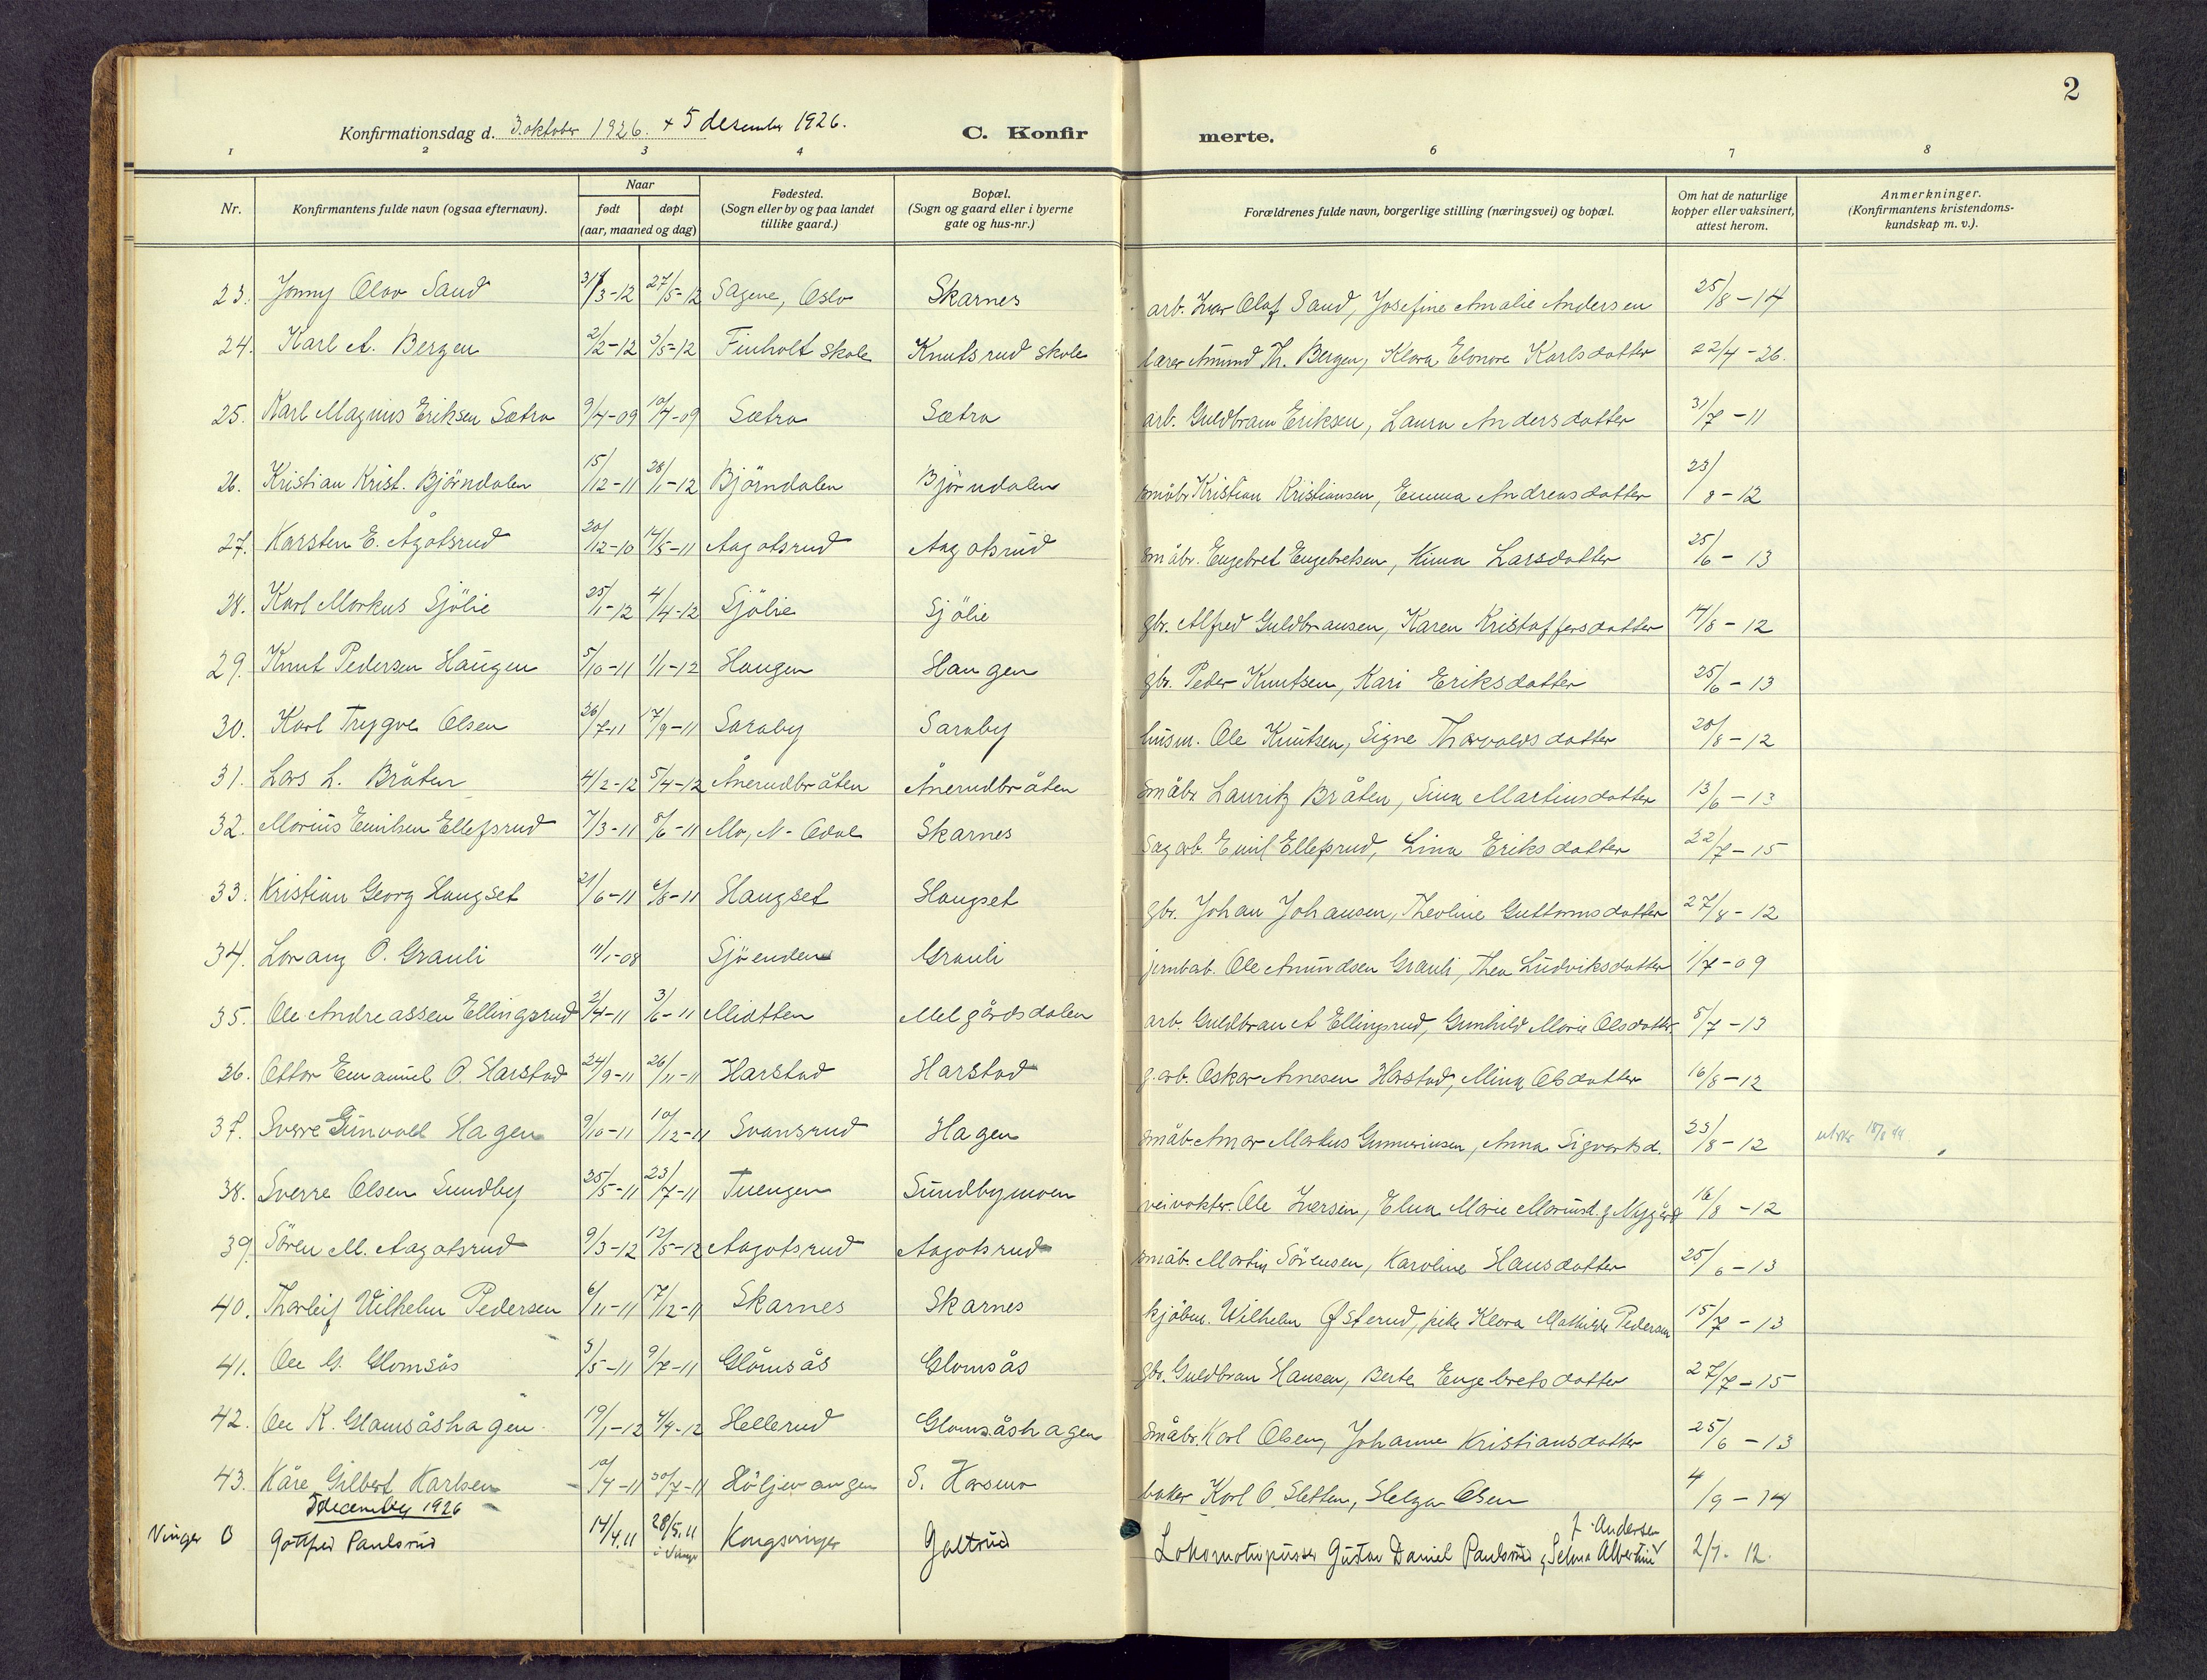 2
Konfirmationsdag d. 3. oktober 1926. + 5 desember 1926.
C. Konfir
merte.
1 2 3 4 6 7 8
Nr.
Konfirmantens fulde navn (ogsaa efternavn).
Naar
født døpt
(aar, maaned og dag)
Fødested.
(Sogn eller by og paa landet
tillike gaard.)
Bopæl.
(Sogn og gaard eller i byerne
gate og hus-nr.)
Forældrenes fulde navn, borgerlige stilling (næringsvei) og bopæl.
Om hat de naturlige
kopper eller vaksinert,
attest herom.
Anmerkninger.
(Konfirmantens kristendoms-
kundskap m. v.).
23. Jonny Olav Sand 31/3-12 27/5-12 Sagene, Oslo Skarnes arb. Ivar Olaf Sand, Josefine Amalie Andersen 25/8-14
24. Karl A. Bergen 2/2-12 3/5-12 Finholt skole Knutsrud skole lærer Amund Th. Bergen, Klara Elonore Karlsdatter 22/4-26.
25. Karl Magnus Eriksen Sætra 9/4-09 10/4-09 Sætra Sætra arb. Guldbran Eriksen, Laura Andersdatter 31/7-11
26. Kristian Krist. Björndalen 15/12-11 28/1-12 Björndalen Björndalen småbr. Kristian Kristiansen, Emma Andreasdatter 23/8-12
27. Karsten E. Ågotsrud 20/12-10 14/5-11 Aagotsrud Aagotsrud småbr. Engebret Engebretsen, Mina Larsdatter 25/6-13
28. Karl Markus Sjölie 25/1-12 4/4-12 Sjölie Sjölie gbr. Alfred Guldbransen, Karen Kristoffersdatter 17/8-12
29. Knut Pedersen Haugen 5/10-11 1/1-12 Haugen Haugen gbr. Peder Knutsen, Kari Eriksdatter 25/6-13
30. Karl Trygve Olsen 26/7-11 17/9-11 Saraby Saraby husm. Ole Knutsen, Signe Thorvaldsdatter 20/8-12
31. Lars L. Bråten 4/2-12 5/4-12 Ånerudbråten Ånerudbråten småbr. Lauritz Bråten, Sina Martinsdatter 13/6-13
32. Marius Emilsen Ellefsrud 7/3-11 5/6-11 Mo, N-Odal Skarnes Sagarb. Emil Ellefsrud, Lina Eriksdatter 22/7-15
33. Kristian Georg Haugset 21/6-11 6/8-11 Haugset Haugset gbr. Johan Johansen, Theoline Guttormsdatter 27/8-12
34. Lorang O. Grauli 11/1-08 Sjöenden Grauli jernbab. Ole Amundsen Grauli, Thea Ludviksdatter 1/7-09
35. Ole Andreassen Ellingsrud 2/4-11 3/6-11 Midtten Melgårdsdalen arb. Guldbran A Ellingsrud, Gunhild Marie Olsdatter 5/7-13
36. Ottar Emanuel O. Harstad 24/9-11 26/11-11 Harstad Harstad g.arb. Oskar Arnesen Harstad, Mina Olsdatter 16/8-12
37. Sverre Gunvald Hagen 9/10-11 10/12-11 Svansrud Hagen småb. Amar Markus Gunneriusen, Anna Sigvartsd. 23/8-12
38. Sverre Olsen Sundby 25/5-11 23/7-11 Tuengen Sundbymoen veivokter Ole Iversen, Elna Marie Mariusd. f Nygård 16/8-12
39. Sören M. Aagotsrud 9/3-12 12/5-12 Aagotsrud Aagotsrud småb. Martin Sörensen, Karoline Hansdatter 25/6-13
40. Thorleif Wilhelm Pedersen 6/11-11 17/12-11 Skarnes Skarnes kjöbm. Wilhelm Østerud, pike Klara Mathilde Pedersen 15/7-13
41. Ole G. Glomsås 3/5-11 9/7-11 Glomsås Glomsås gbr. Guldbran Hansen, Berte Engebretsdatter 27/7-15
42. Ole K. Glomsåshagen 19/1-12 4/4-12 Hellerud Glomsåshagen småbr. Karl Olsen, Johanne Kristiansdatter 25/6-13
43. Kåre Gilbert Karlsen 10/4-11 30/7-11 Höljevangen S. Korsmo baker Karl O. Sletten, Helga Olsen 4/9-14
5 december 1926
f. Andersen
Vinger 0 Gottfred Paulsrud 14/4.11 28/5.11 i Vinger Kongsvinger Galterud Lokomotivpusser Gustav Daniel Paulsrud & Selma Albertine 2/7-12.